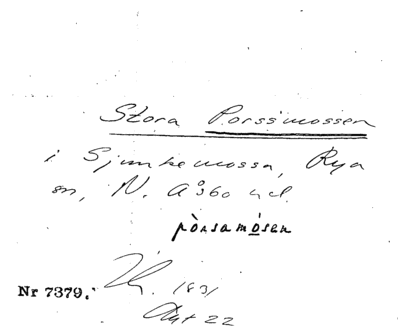 Stora Porssimossen
i Sjunkemossa, Rya
sn, N. Åsbo hd.
pòrsamósen
Nr 7379.
1831
22